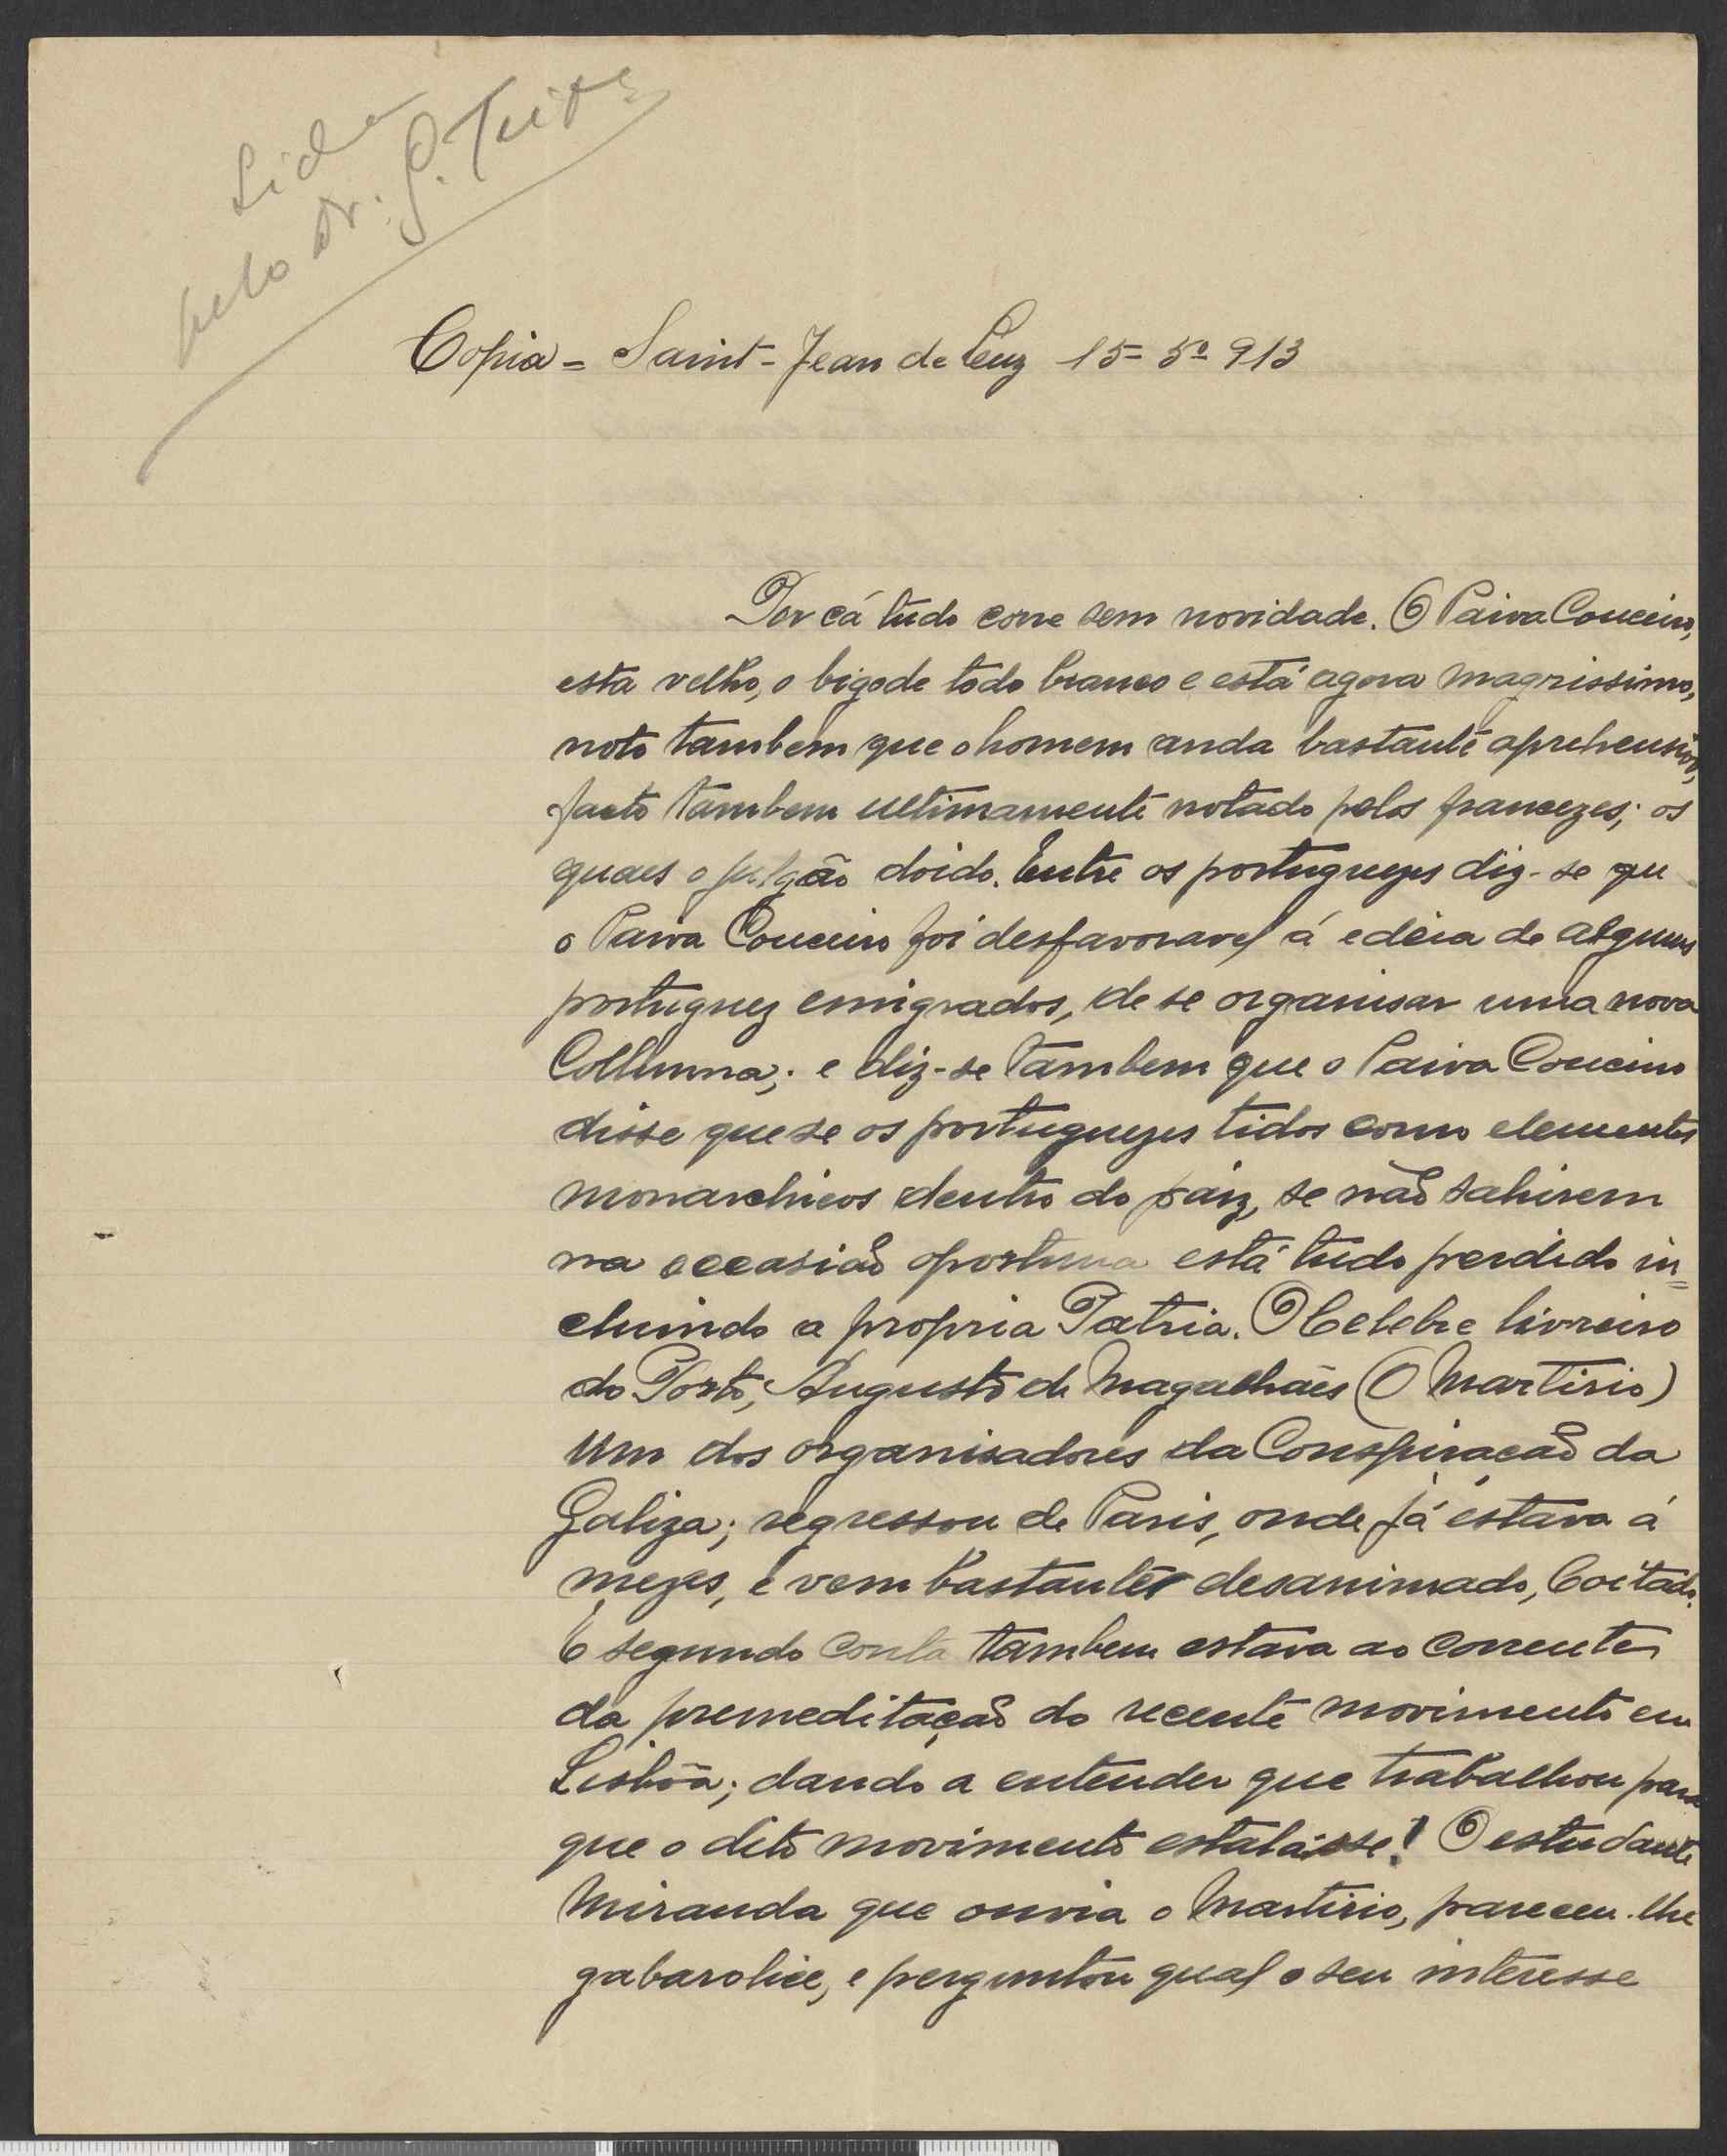 Lida
pelo Dr. G.
Copia = Saint-Jean de Luz 15= 5º 913
Por cá tudo corre sem novidade. O Paiva Couceiro,
esta velho, o bigode todo branco e está agora magrissimo,
noto tambem que o homem anda bastante aprehensivo,
facto tambem ultimamente notado pelos francezes; os
quaes o julgão doido. Entre os portuguezes diz-se que
o Paiva Couceiro foi desfavoravel á edeia de alguns
portuguez emigrados, de se organisar uma nova
Collumna; e diz-se tambem que o Paiva Couceiro
disse que se os portuguezes tidos como elementos
monarchicos dentro do paiz, se não sahirem
na occasião oportuna está tudo perdido in=
cluindo a propria Patria. O Celebre livreiro
do Porto, Augusto de Magalhães (O Martirio)
um dos organisadores da Conspiracão da
Galiza; regressou de Paris, onde já estava á
mezes, e vem bastante desanimado, Coitado.
E segundo conta tambem estava ao corrente
da premeditação do recente movimento em
Lisbôa; dando a entender que trabalhou para
que o dito movimento estalásse! O estudante
Miranda que ouvia o Martirio, pareceu-lhe
gabarolice, e perguntou qual o seu interesse